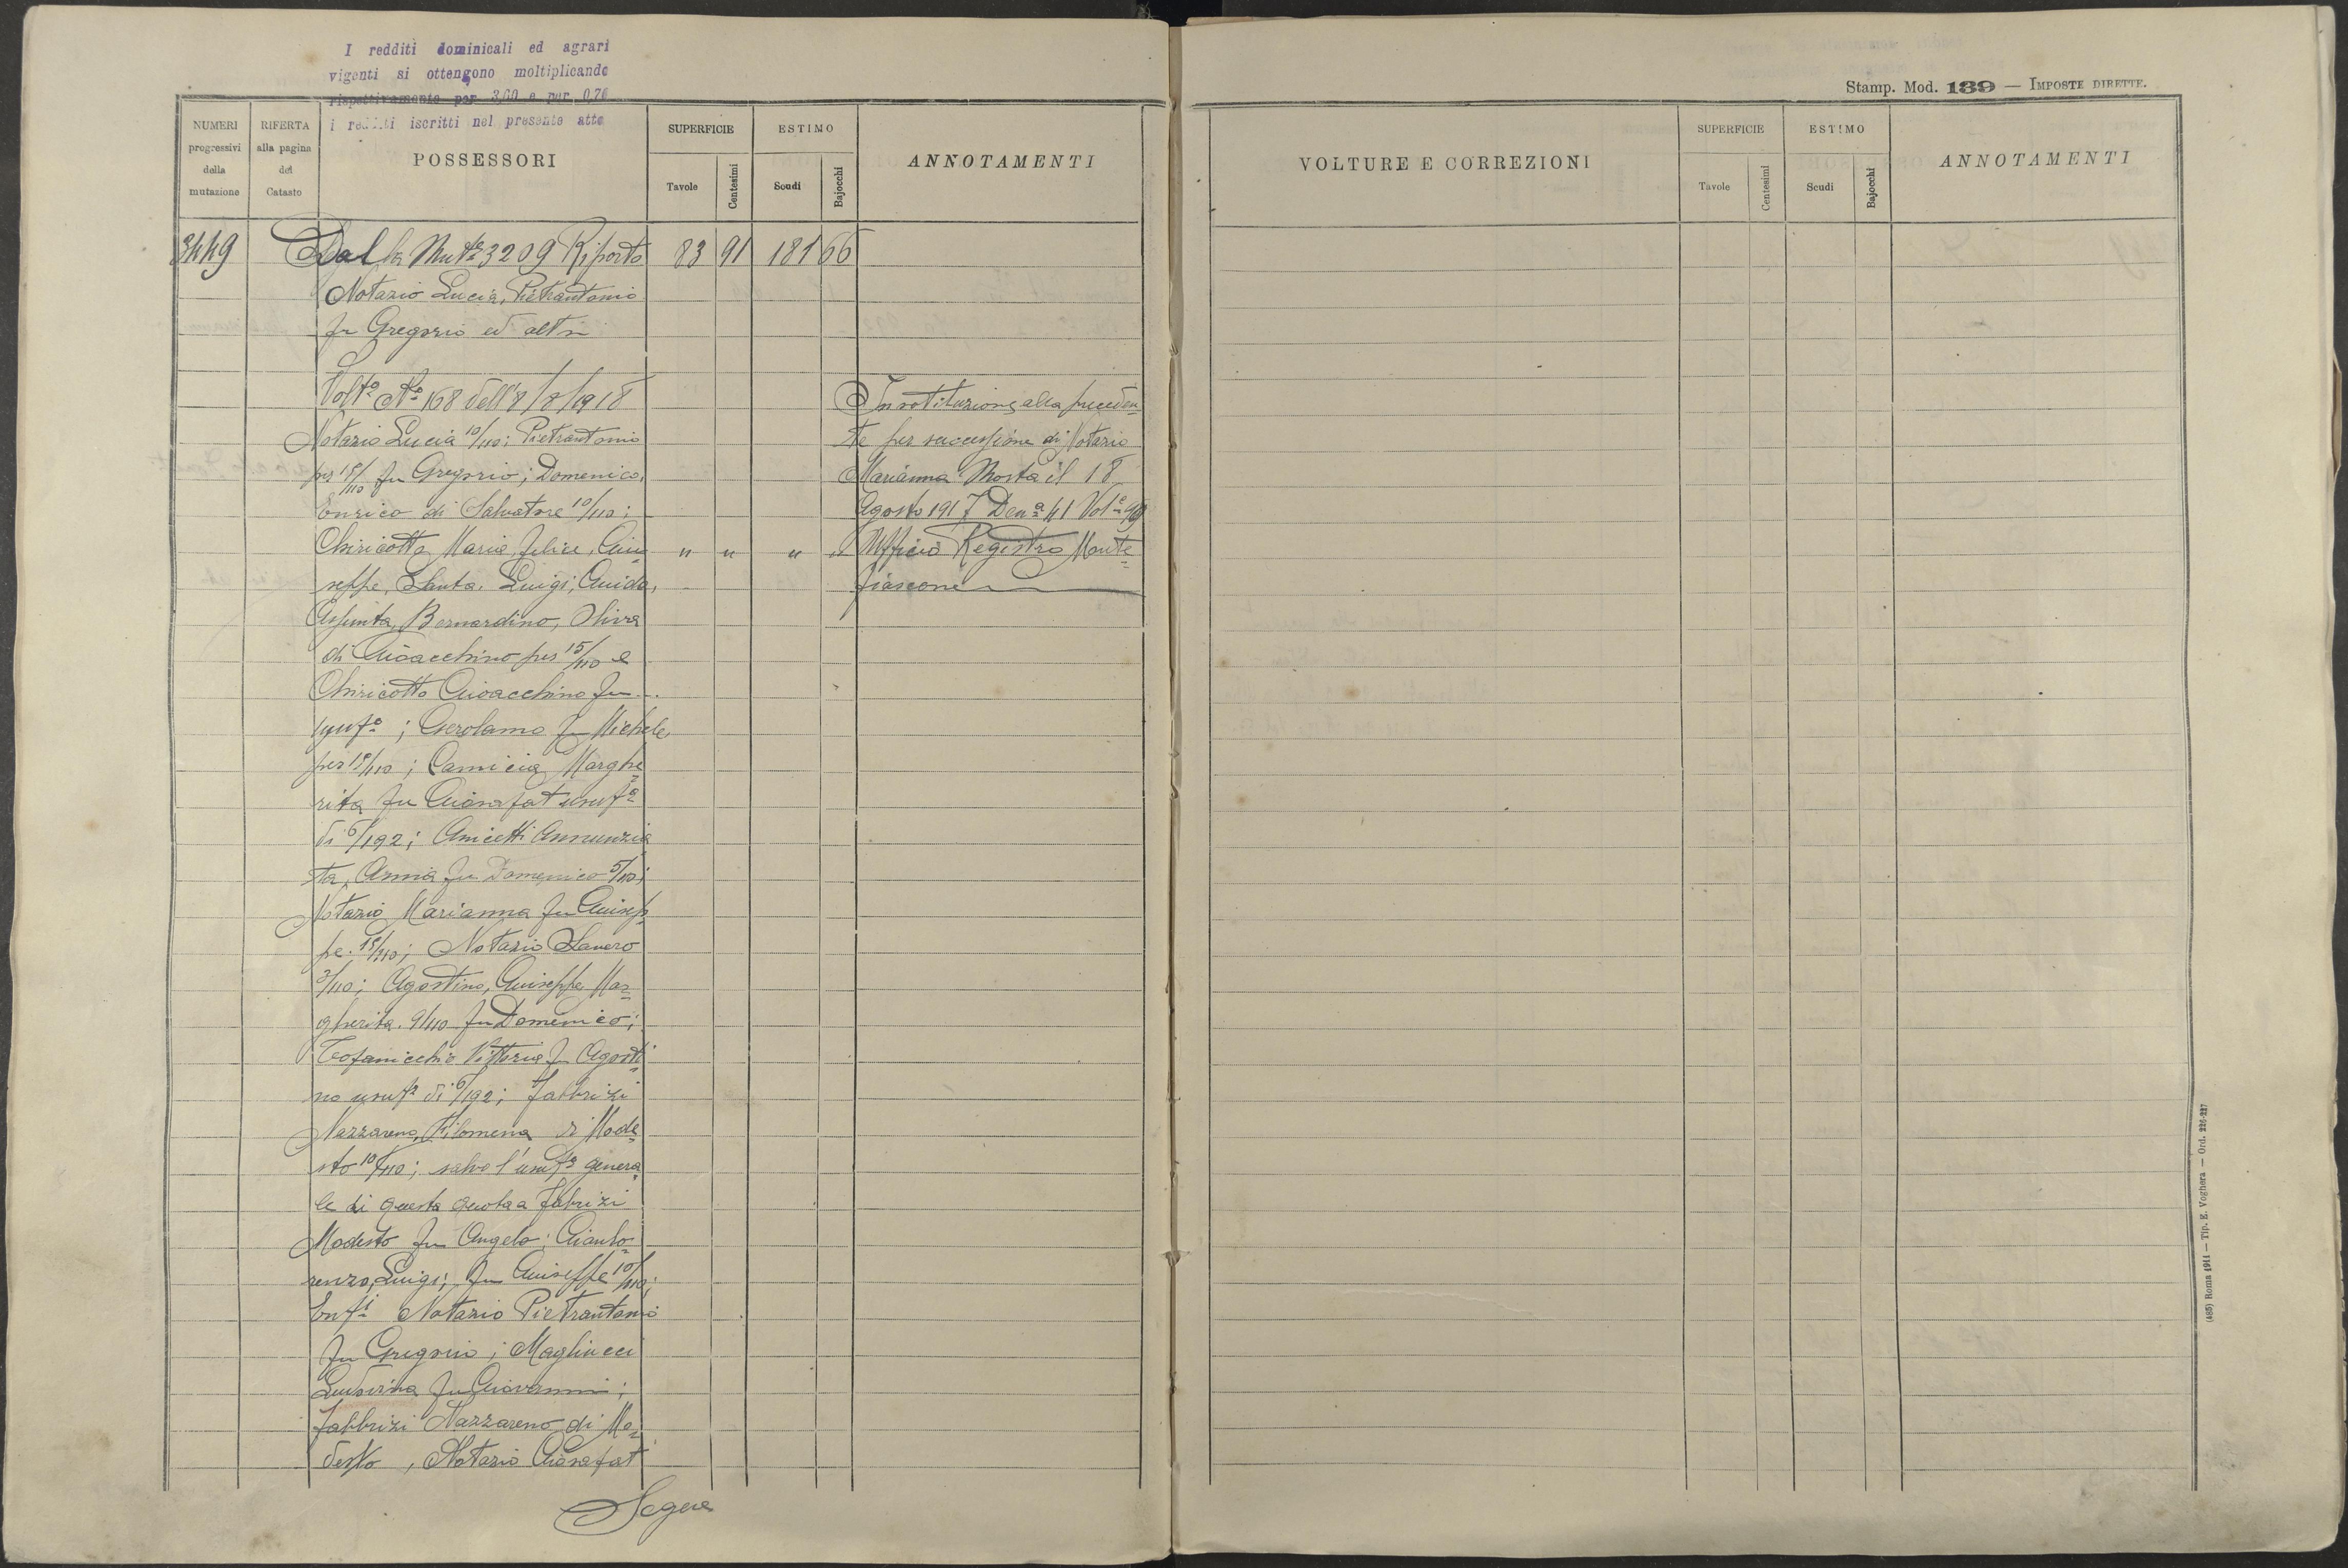 I redditi dominicali ed agrari
vigenti si ottengono moltiplicando
rispettivamente per 3,60 e per 0,76
i redditi iscritti nel presente atto
NUMERI progressivi della mutazione
RIFERTA alla pagina del Catasto
POSSESSORI
SUPERFICIE
Tavole
Centesimi
ESTIMO
Scudi
Bajocchi
ANNOTAMENTI
3449 Dalla Mut.e 3209 Riporto 83 91 181 66
Notazio Lucia, Pietrantonio
fu Gregorio ed altri
Volt.a N.o 168 dell'8/8/1918
Notazio Lucia 10/110; Pietrantonio
per 15/110 fu Gregorio; Domenico,
Enrico di Salvatore 10/110;
Chiricotto Maria, Felice, Giu
seppe, Santa, Luigi, Guido,
Assunta, Bernardino, Oliva
di Gioacchino per 15/110 e
Chiricotto Gioacchino fu ...
usuf.o; Gerolamo fu Michele
per 15/110; Camicia Marghe
rita fu Giosafat usuf.a
di 6/192; Anicetti Annunzia
ta, Anna fu Domenico 5/110;
Notazio Marianna fu Giusep
pe 15/110; Notazio Savero
3/110; Agostino, Giuseppe, Mar
gherita 9/110 fu Domenico;
Cofanicchio Vittoria fu Agosti
no usuf.a di 6/192; Fabbrizi
Nazzareno, Filomena di Mode
sto 10/110; salvo l'usuf.o genera
le di questa quota a Fabrizi
Modesto fu Angelo; Gianlo
renzo, Luigi, fu Giuseppe 10/110;
Enf.i Notazio Pietrantonio
fu Gregorio; Magliucci
Ludovina fu Giovanni;
Fabbrizi Nazzareno di Mo
desto, Notazio Giosafat
Segue
" " " "
In sostituzione alla preceden
te per successione di Notazio
Marianna Morta il 18
Agosto 1917 Den.a 41 Vol.e 99
Ufficio Registro Monte
fiascone
Stamp. Mod. 139 — IMPOSTE DIRETTE.
VOLTURE E CORREZIONI
SUPERFICIE
Tavole
Centesimi
ESTIMO
Scudi
Bajocchi
ANNOTAMENTI
(485) Roma 1914 — Tip. E. Voghera — Ord. 226-227